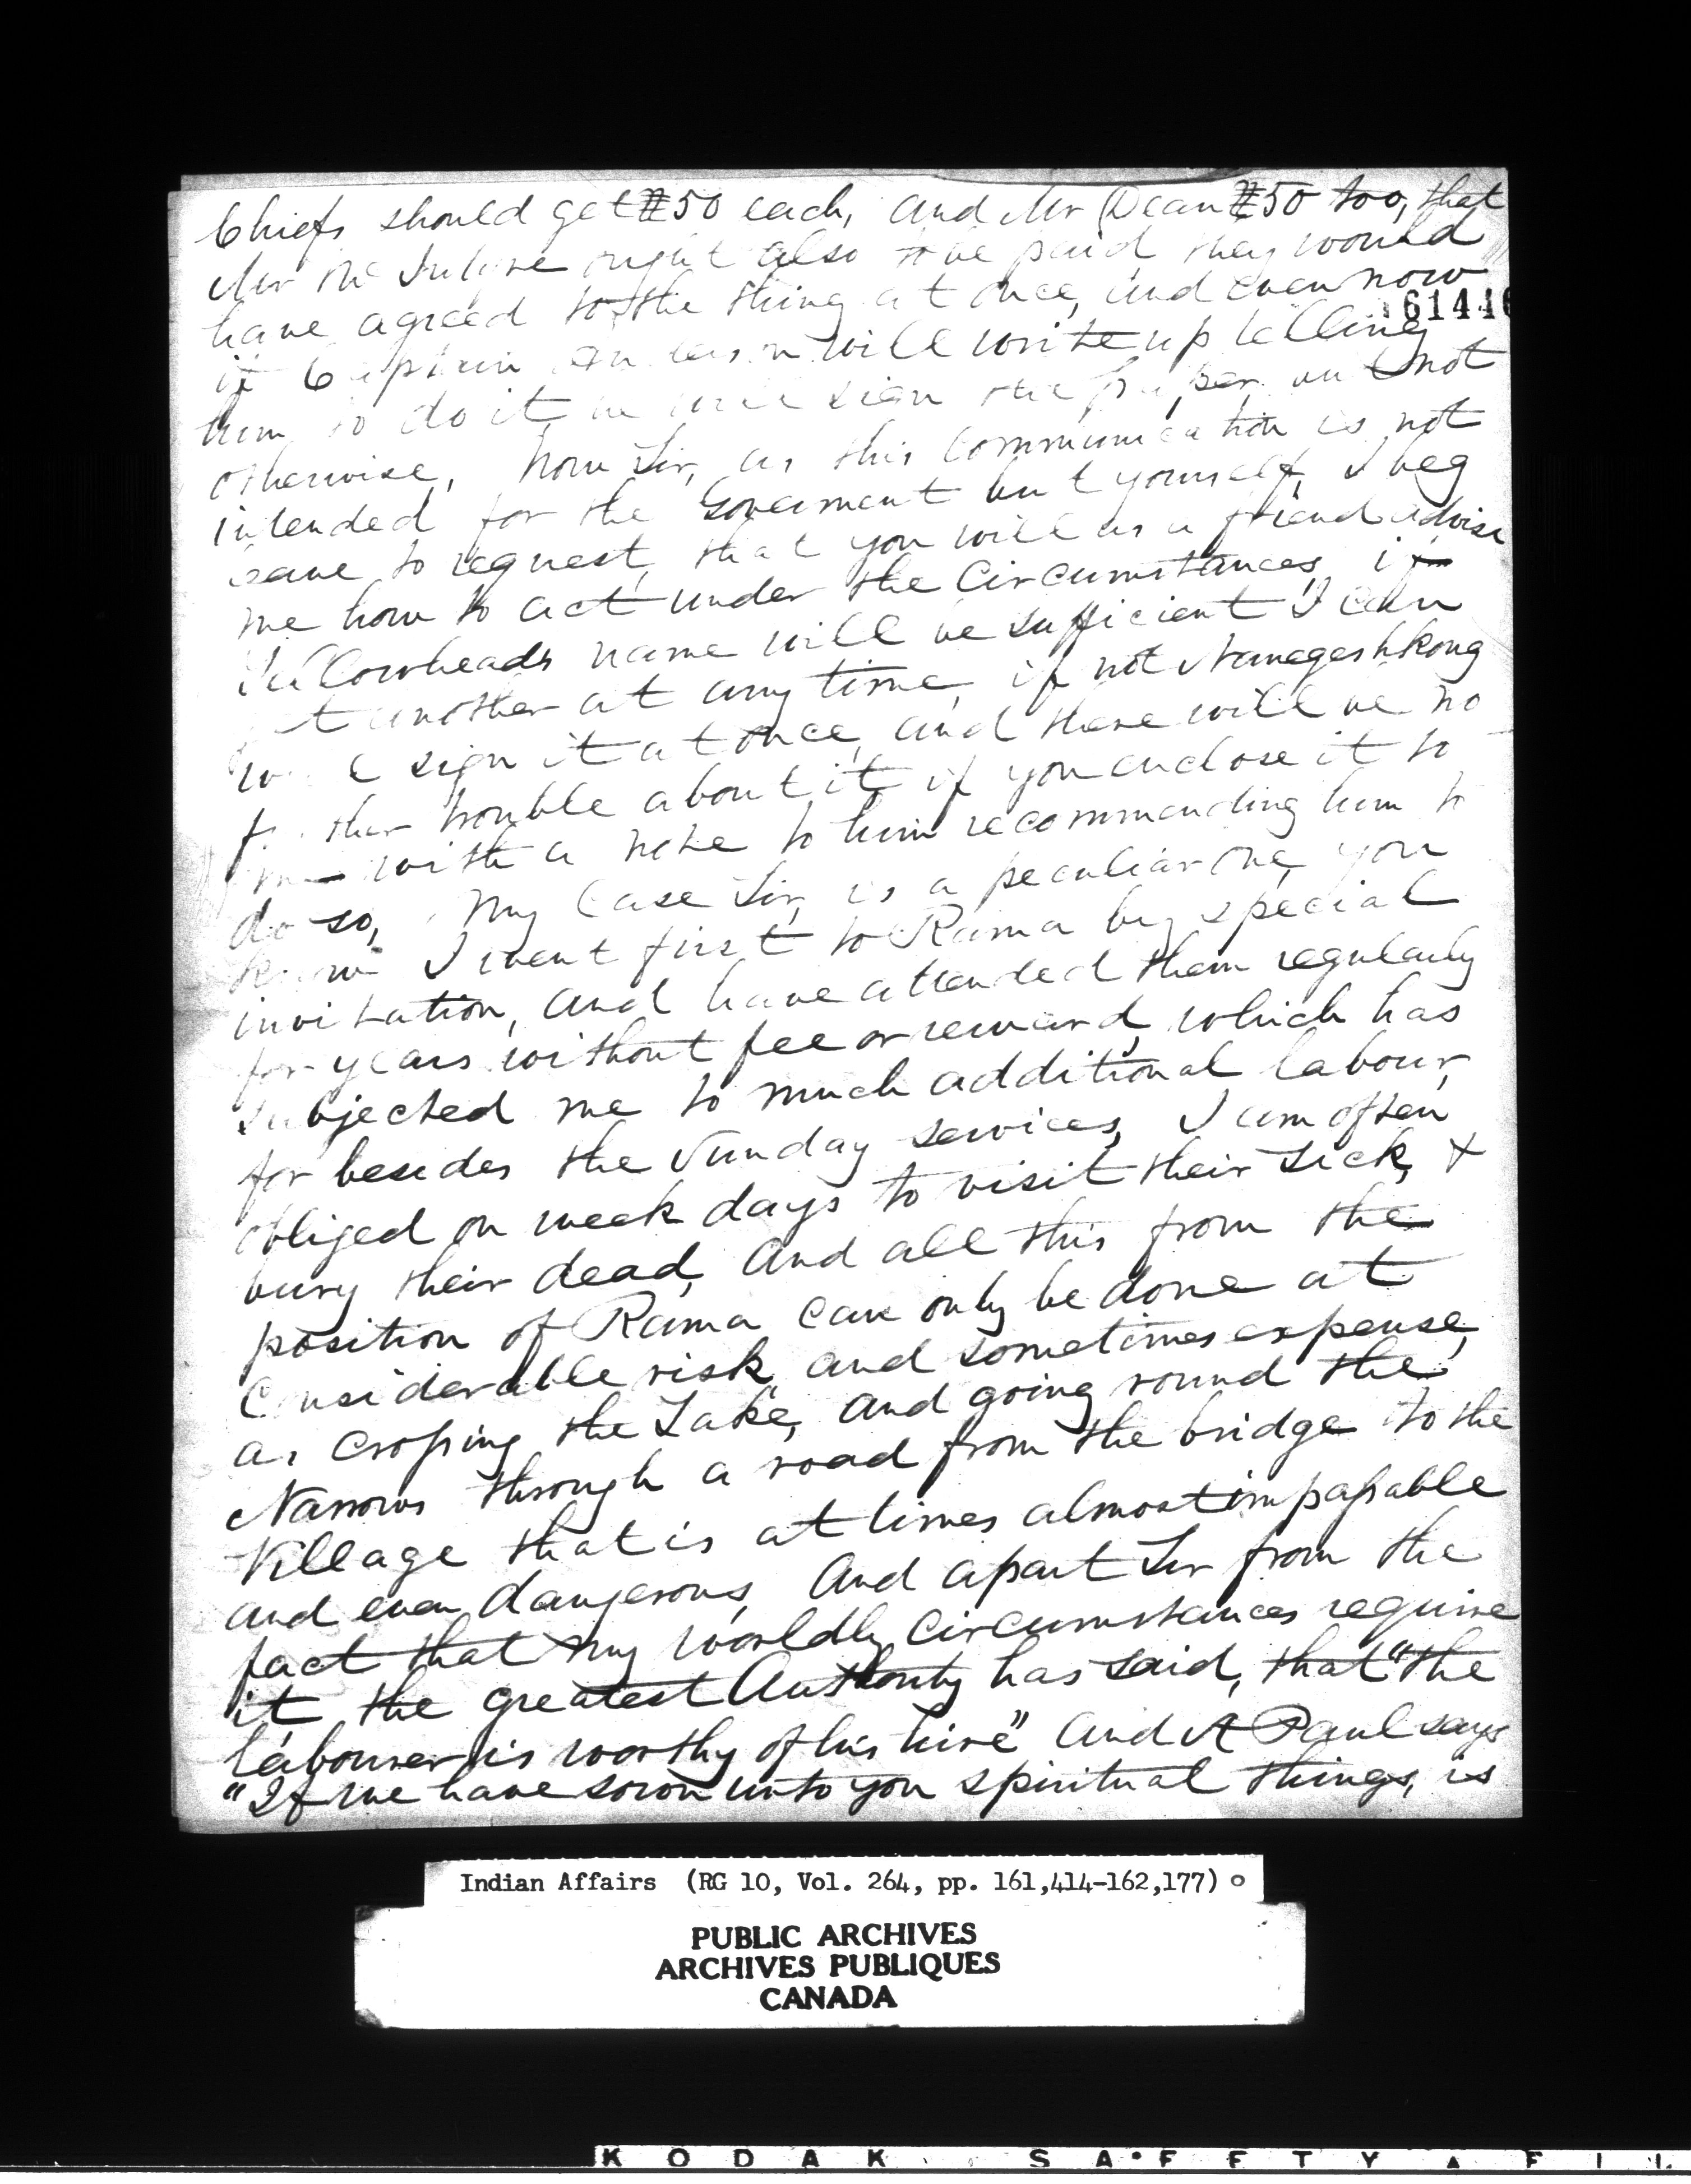 Chiefs should get £50 each, and Mr Dean £50 too, that
Mr ought also to be paid they would
have agreed to the thing at once, and even now
161446
if Captain Anderson will write up telling
him to do it he will sign the paper but not
otherwise, Now Sir, as this Communication is not
intended for the Goverment but yourself, I beg
leave to request, that you will as a friend advise
me how to act under the Circumstances, if
Yellowheads name will be sufficient I can
get another at any time, if not Nanegeshkong
will sign it at once, and there will be no
further trouble about it if you enclose it to
me with a note to him recommending him to
do so, My Case Sir, is a peculiar one, you
know I went first to Rama by special
invitation, and have attended them regularly
for years without fee or reward, which has
subjected me to much additional labour,
for besides the Sunday services, I am often
obliged on week days to visit their sick, &
bury their dead, and all this from the
position of Rama can only be done at
Considerable risk, and sometimes expense,
as crossing the Lake, and going round the
Narrows through a road from the bridge to the
Village that is at times almost impassable
and even dangerous, And apart Sir from the
fact that my worldly Circumstances require
it, the greatest Authority has said, that "the
labourer is worthy of his hire" and St Paul says
"If we have sown unto you spiritual things, is
Indian Affairs (RG 10, Vol. 264, pp. 161,414-162,177)
PUBLIC ARCHIVES
ARCHIVES PUBLIQUES
CANADA
KODAK SAFETY FIL